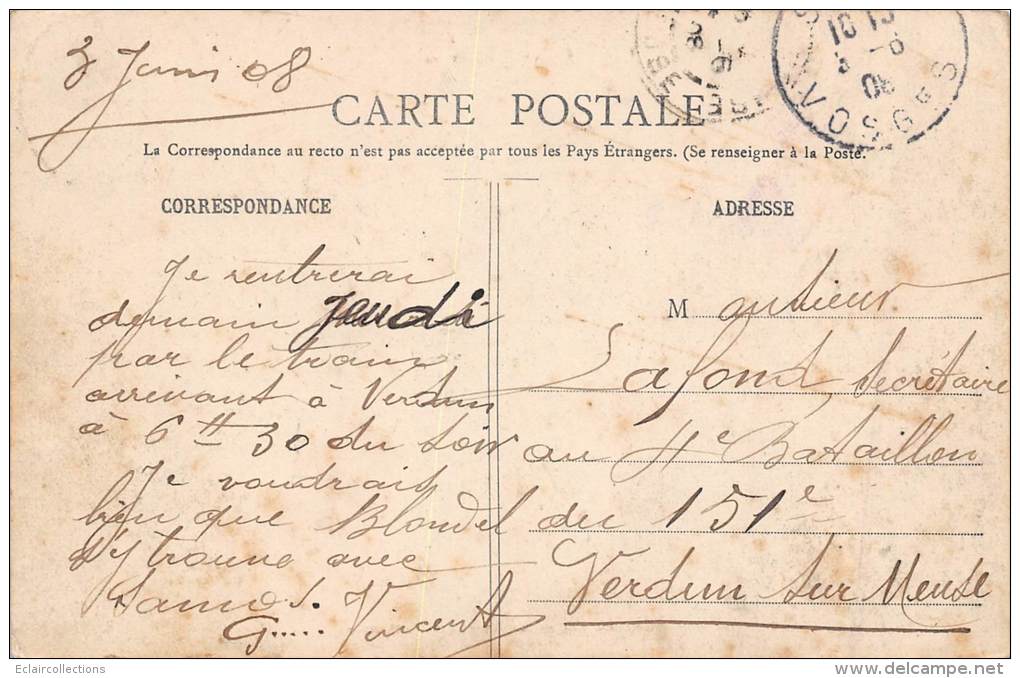 3 Juin 08
CARTE POSTALE
La Correspondance au recto n'est pas acceptée par tous les Pays Étrangers. (Se renseigner à la Poste.
CORRESPONDANCE
Je rentrerai
demain Jeudi
par le train
arrivant à Verdun
à 6 H 30 du soir
Je voudrais
bien que Blondel
s'y trouve avec
G..... Vincent
ADRESSE
Monsieur
Lafond, Secrétaire
au 4e Bataillon
du 151e
Verdun sur Meuse
VOSGES
Eclaircollections
delcampe.net